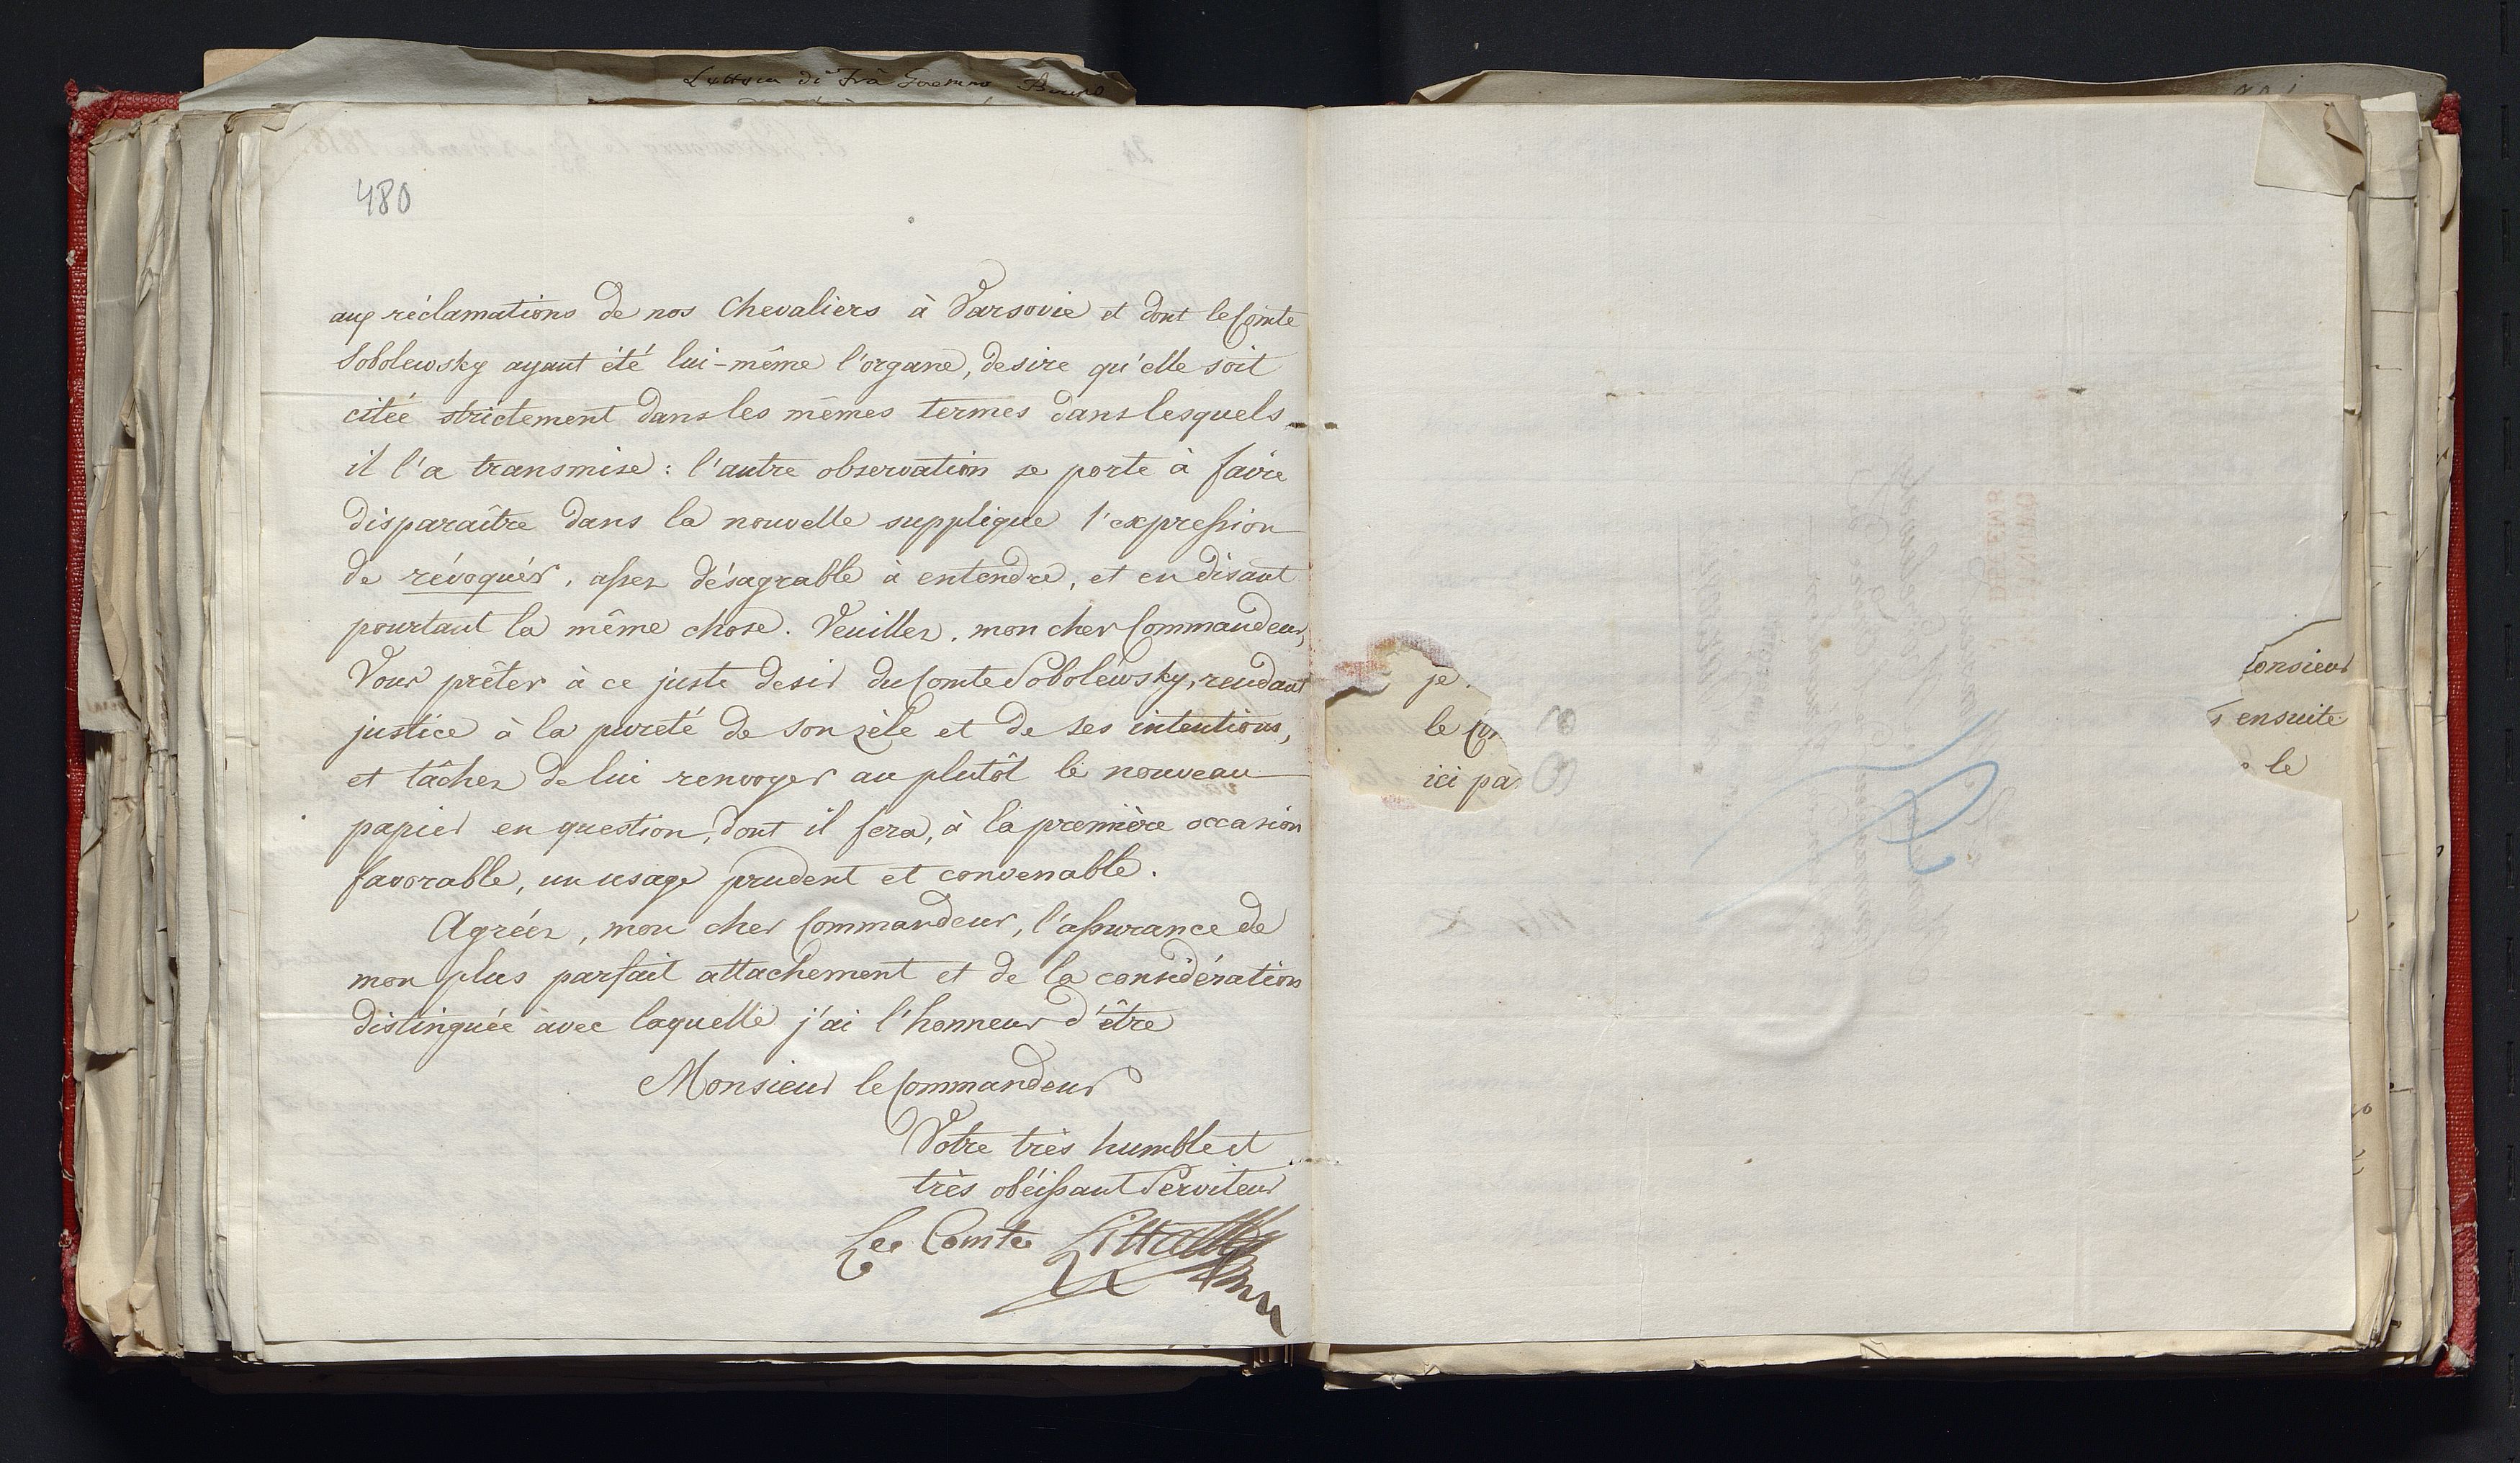 Lettera di Frà
480
aux réclamations de nos Chevaliers à Varsovie et dont le Comte
Sobolewsky ayant été lui-même l'organe, desire qu'elle soit
citée strictement dans les mêmes termes dans lesquels
il l'a transmise : l'autre observation se porte à faire
disparaître dans la nouvelle supplique l'expression
de révoquér, assez désagrable à entendre, et en disant
pourtant la même chose. Veuillez, mon cher Commandeur,
Vous prêter à ce juste desir du Comte Sobolewsky, rendant
justice à la pureté de son zèle et de ses intentions,
et tâchez de lui renvoyer au plutôt le nouveau
papier en question, dont il fera, à la première occasion
favorable, un usage prudent et convenable.
Agréez, mon cher Commandeur, l'assurance de
mon plus parfait attachement et de la considération
distinguée avec laquelle j'ai l'honneur d'être
Monsieur le Commandeur
Votre très humble et
très obéissant Serviteur
Le Comte Litta
je
le Co
ici pa
onsieur
ensuite
le